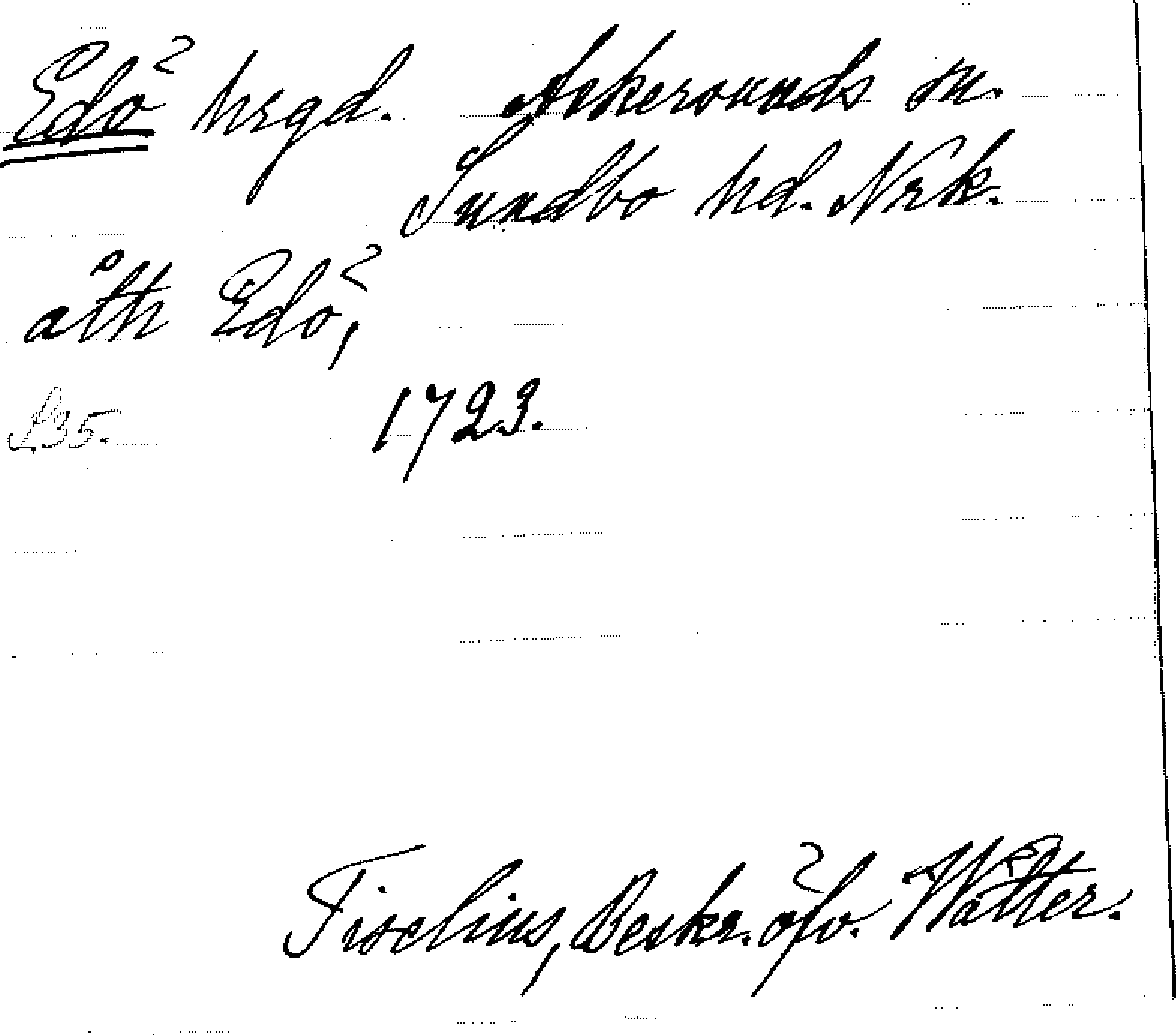 Edö hrgd. Askersunds sn.
Sundbo hd. Nrk.
åth Edö,
S.35. 1723.
Tiselius, Beskr. öfv. Wätter.